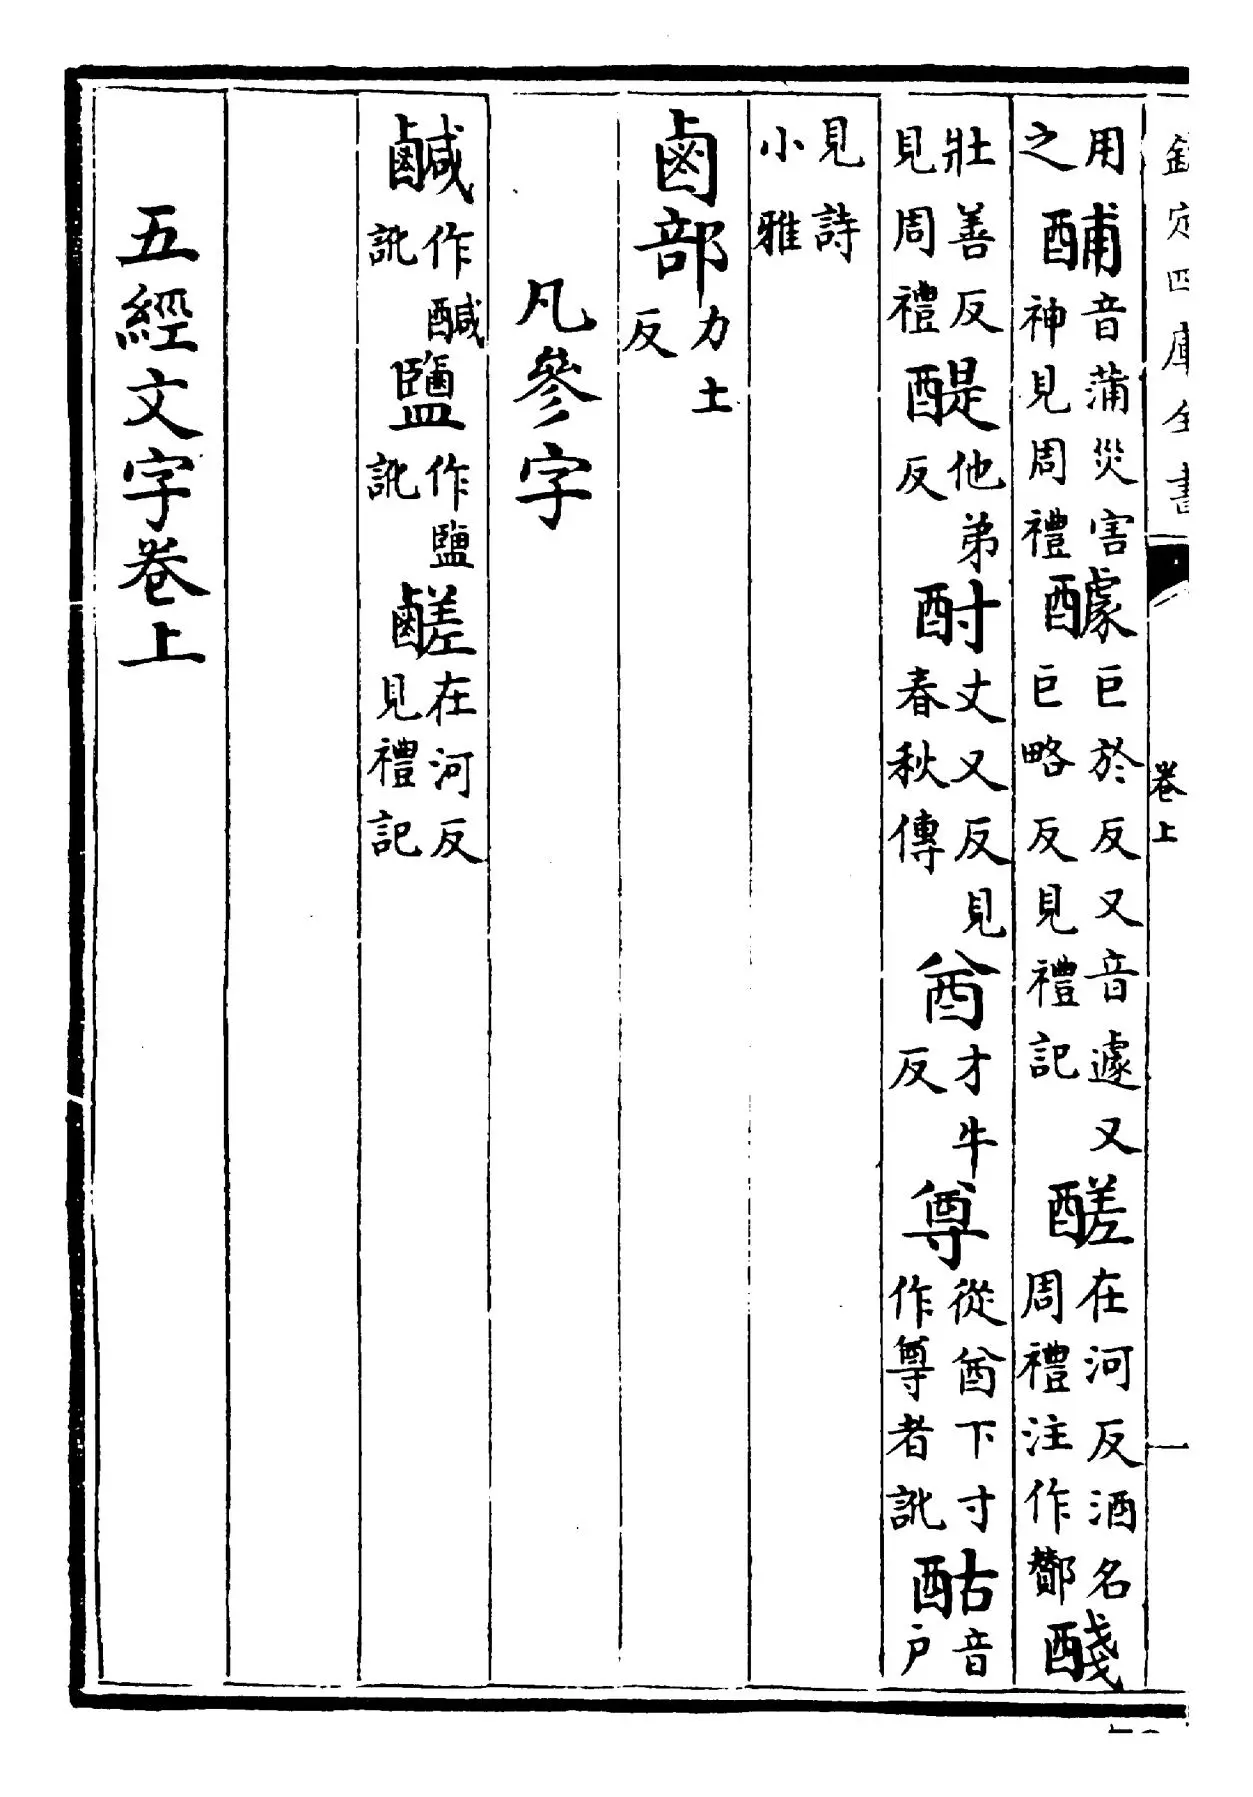 欽定四庫全書
卷上
用之酺音蒲災害神見周禮醵巨於反又音遽又巨略反見禮記醝在河反酒名周禮注作酇醆
壯善反見周禮醍他弟反酎丈又反見春秋傳酋才牛反尊從酋下寸作尊者訛酤音戶
見詩小雅
鹵部力土反
凡參字
鹹作醎訛鹽作塩訛鹺在河反見禮記
五經文字卷上